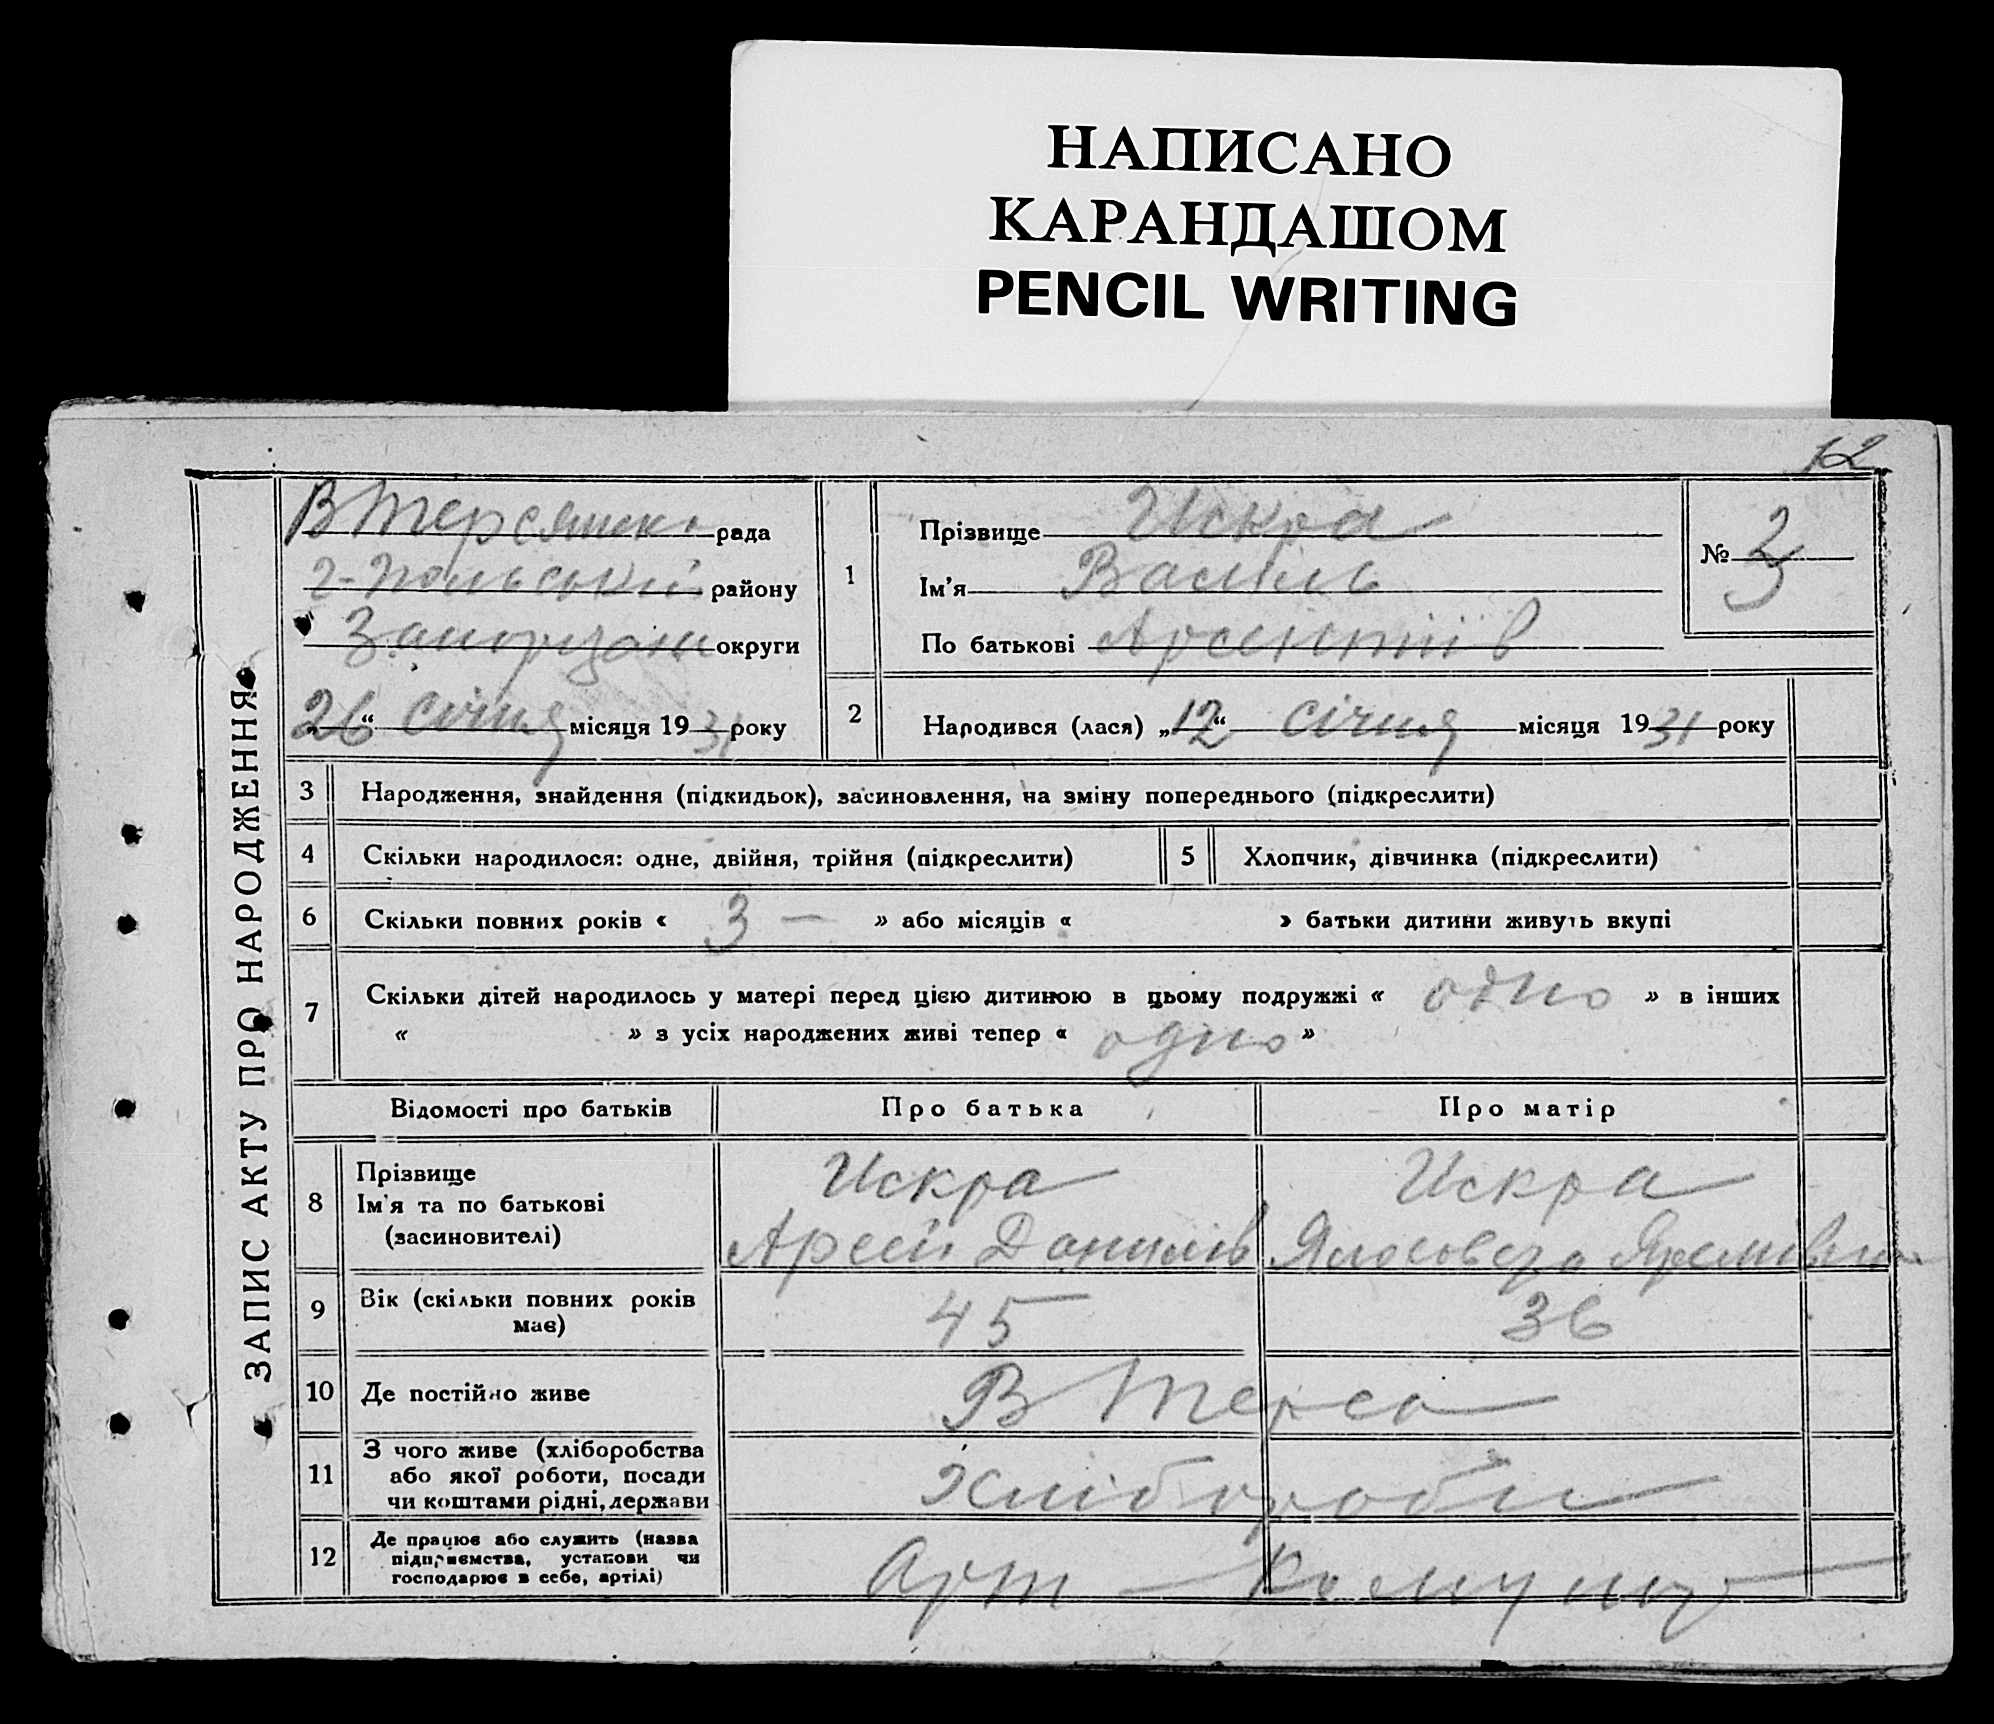 НАПИСАНО
КАРАНДАШОМ
PENCIL WRITING
12
ЗАПИС АКТУ ПРО НАРОДЖЕННЯ
рада
району
округи
26 “ Січня місяця 1931 року
1
Прізвище Искра
Ім'я Василь
По батькові Арсентіїв
№
2 Народився (лася) „12“ Січня місяця 1931 року
3 Народження, знайдення (підкидьок), засиновлення, на зміну попереднього (підкреслити)
4 Скільки народилося: одне, двійня, трійня (підкреслити) 5 Хлопчик, дівчинка (підкреслити)
6 Скільки повних років « 3 — » або місяців « » батьки дитини живуть вкупі
7 Скільки дітей народилось у матері перед цією дитиною в цьому подружжі « одно » в інших
« » з усіх народжених живі тепер « одно »
Відомості про батьків Про батька Про матір
8 Прізвище Искра Искра
Ім'я та по батькові
(засиновителі) Данилів
9 Вік (скільки повних років має) 45 36
10 Де постійно живе В Терса
11 З чого живе (хліборобства Хлібороби
або якої роботи, посади
чи коштами рідні, держави
12 Де працює або служить (назва
підприємства, установи чи
господарює в себе, артілі) Арт